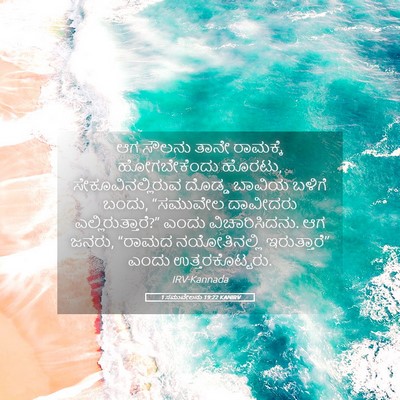 ಆಗ ಸೌಲನು ತಾನೇ ರಾಮಕ್ಕೆ
ಹೋಗಬೇಕೆಂದು ಹೊರಟು,
ಸೇಕೂವಿನಲ್ಲಿರುವ ದೊಡ್ಡ ಬಾವಿಯ ಬಳಿಗೆ
ಬಂದು, “ಸಮುವೇಲ ದಾವೀದರು
ಎಲ್ಲಿರುತ್ತಾರೆ?” ಎಂದು ವಿಚಾರಿಸಿದನು. ಆಗ
ಜನರು, “ರಾಮದ ನಯೋತಿನಲ್ಲಿ ಇರುತ್ತಾರೆ”
ಎಂದು ಉತ್ತರಕೊಟ್ಟರು.
IRV-Kannada
1 ಸಮುವೇಲನು 19:22 KANIRV